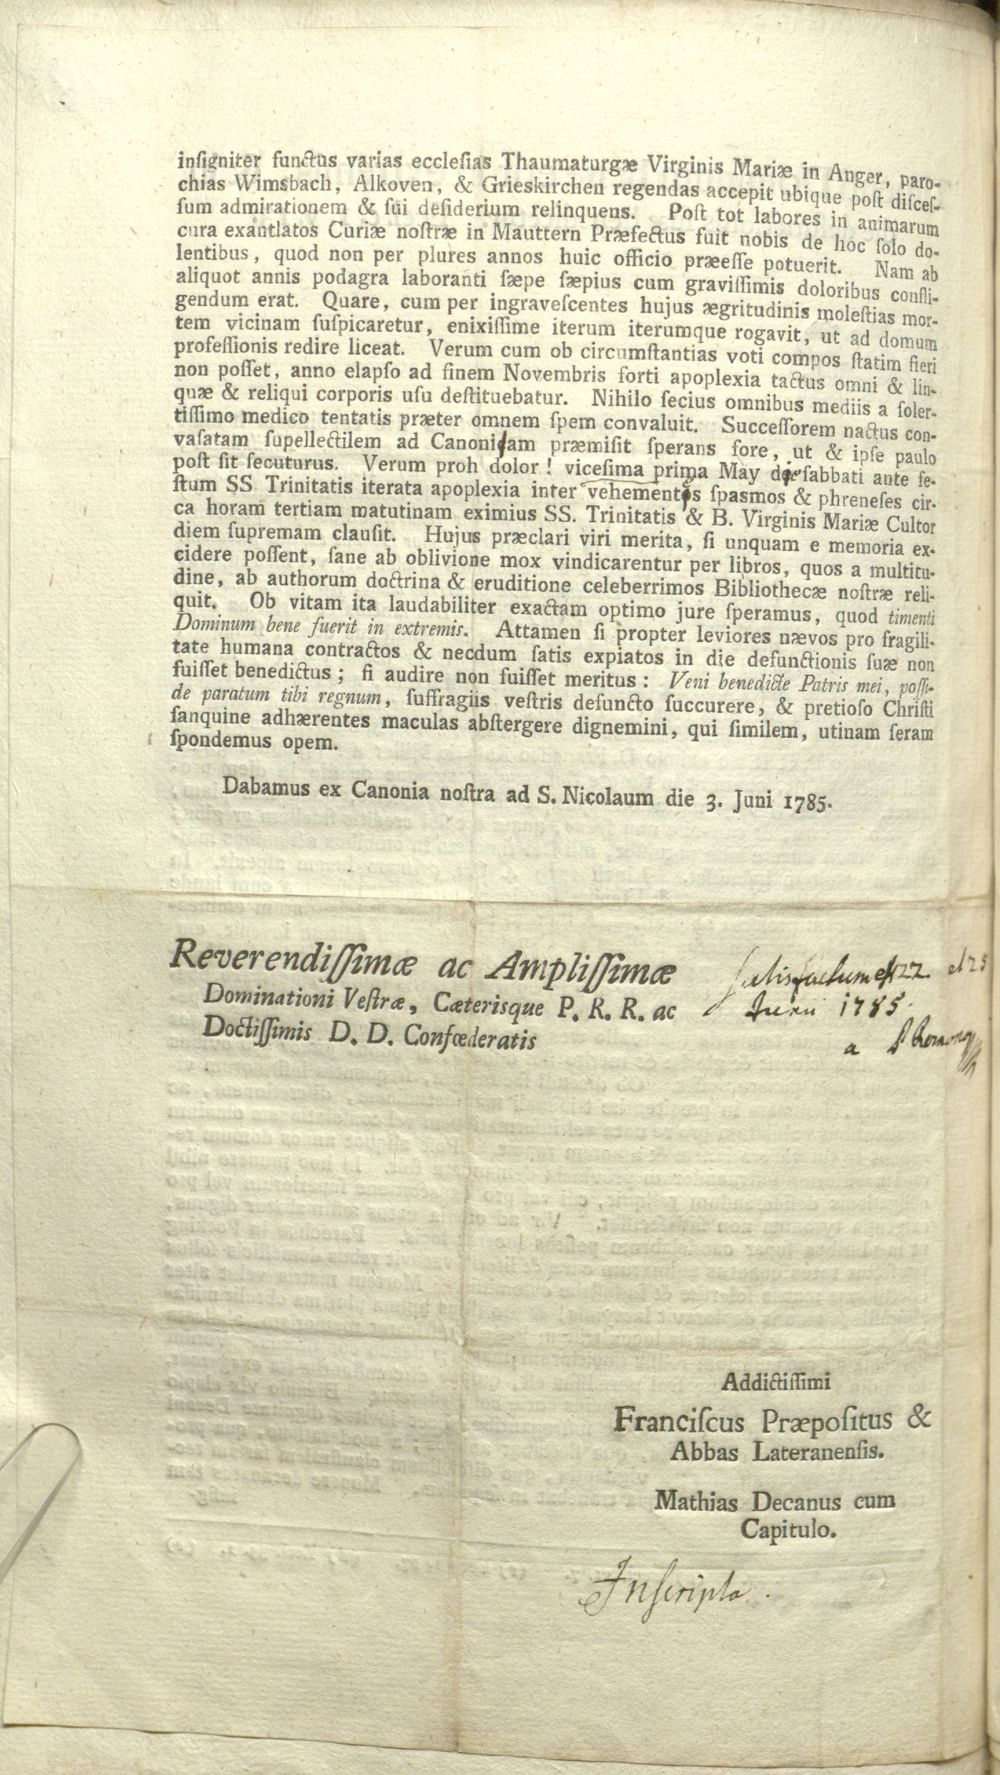 inſigniter functus varias eccleſias Thaumaturgæ Virginis Mariæ in Anger, paro-
chias Wimsbach, Alkoven, & Grieskirchen regendas accepit ubique poſt diſceſ-
ſum admirationem & ſui deſiderium relinquens. Poſt tot labores in animarum
cura exantlatos Curiæ noſtræ in Mauttern Præfectus fuit nobis de hoc ſolo do-
lentibus, quod non per plures annos huic officio præeſſe potuerit. Nam ab
aliquot annis podagra laboranti ſæpe ſæpius cum graviſſimis doloribus confli-
gendum erat. Quare, cum per ingraveſcentes hujus ægritudinis moleſtias mor-
tem vicinam ſuſpicaretur, enixiſſime iterum iterumque rogavit, ut ad domum
profeſſionis redire liceat. Verum cum ob circumſtantias voti compos ſtatim fieri
non poſſet, anno elapſo ad finem Novembris forti apoplexia tactus omni & lin-
quæ & reliqui corporis uſu deſtituebatur. Nihilo ſecius omnibus mediis a ſoler-
tiſſimo medico tentatis præter omnem ſpem convaluit. Succeſſorem nactus con-
vaſatam ſupellectilem ad Canoniam præmiſit ſperans fore, ut & ipſe paulo
poſt ſit ſecuturus. Verum proh dolor! viceſima prima May die ſabbati ante fe-
ſtum SS Trinitatis iterata apoplexia inter vehementes ſpasmos & phreneſes cir-
ca horam tertiam matutinam eximius SS. Trinitatis & B. Virginis Mariæ Cultor
diem ſupremam clauſit. Hujus præclari viri merita, ſi unquam e memoria ex-
cidere poſſent, ſane ab oblivione mox vindicarentur per libros, quos a multitu-
dine, ab authorum doctrina & eruditione celeberrimos Bibliothecæ noſtræ reli-
quit. Ob vitam ita laudabiliter exactam optimo jure ſperamus, quod timenti
Dominum bene fuerit in extremis. Attamen ſi propter leviores nævos pro fragili-
tate humana contractos & necdum ſatis expiatos in die defunctionis ſuæ non
fuiſſet benedictus; ſi audire non fuiſſet meritus: Veni benedicte Patris mei, poſſi-
de paratum tibi regnum, ſuffragiis veſtris defuncto ſuccurere, & pretioſo Chriſti
ſanquine adhærentes maculas abſtergere dignemini, qui ſimilem, utinam ſeram
ſpondemus opem.
Dabamus ex Canonia noſtra ad S. Nicolaum die 3. Juni 1785.
Reverendiſſimæ ac Ampliſſimæ
Dominationi Veſtræ, Cæterisque P. R. R. ac
Doctiſſimis D. D. Confœderatis
ſatisfactum eſt 22 et 23
Junii 1785.
a P.
Addictiſſimi
Franciſcus Præpoſitus &
Abbas Lateranenſis.
Mathias Decanus cum
Capitulo.
Inſcripta.